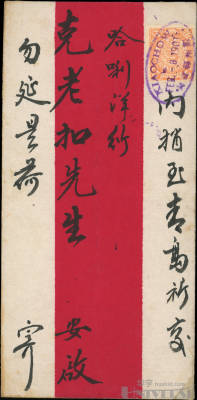 內稍至青島祈交
哈唎洋行
克老扣先生 安啟
勿延是荷 寄
KIAOCHOW